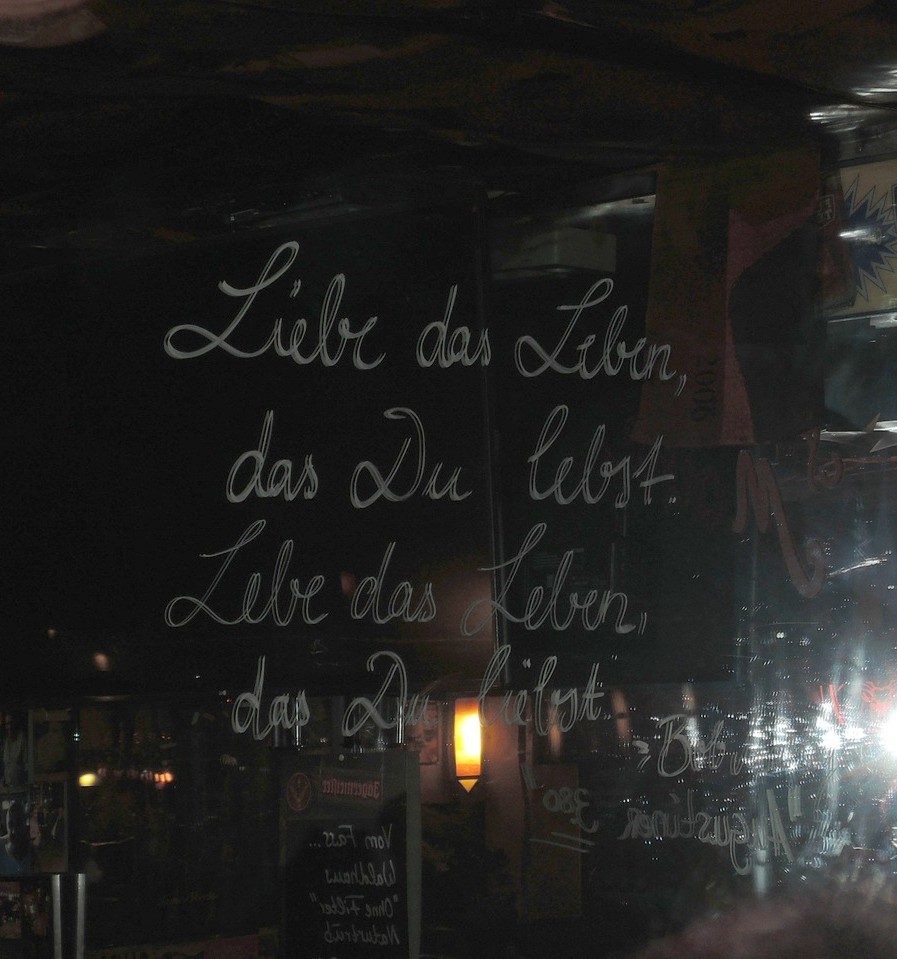 Liebe das Leben,
das Du lebst.
Lebe das Leben,
das Du liebst.
2006
Jägermeister
Vom Fass...
Waldhaus
"Ohne Filter"
Naturtrüb
"Augustiner
3,80